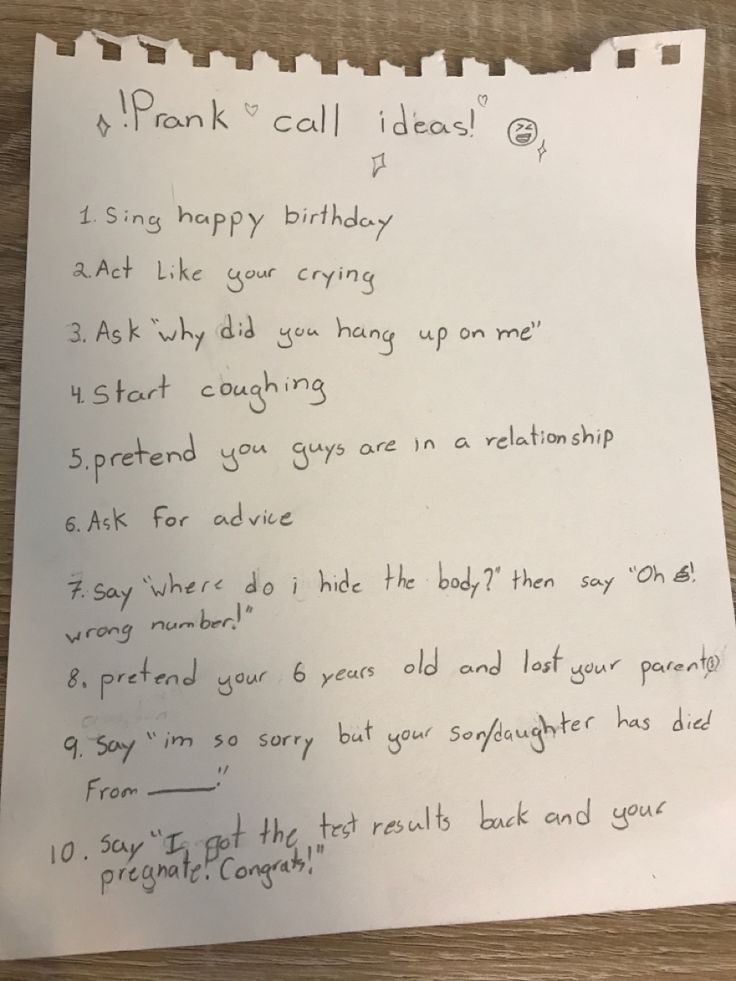 !Prank call ideas!
1. Sing happy birthday
2. Act Like your crying
3. Ask "why did you hang up on me"
4. Start coughing
5. pretend you guys are in a relationship
6. Ask for advice
7. Say "where do i hide the body?" then say "Oh s!
wrong number!"
8. pretend your 6 years old and lost your parent(s)
9. Say "im so sorry but your son/daughter has died
From ____."
10. Say "I got the test results back and your
pregnate! Congrats!"